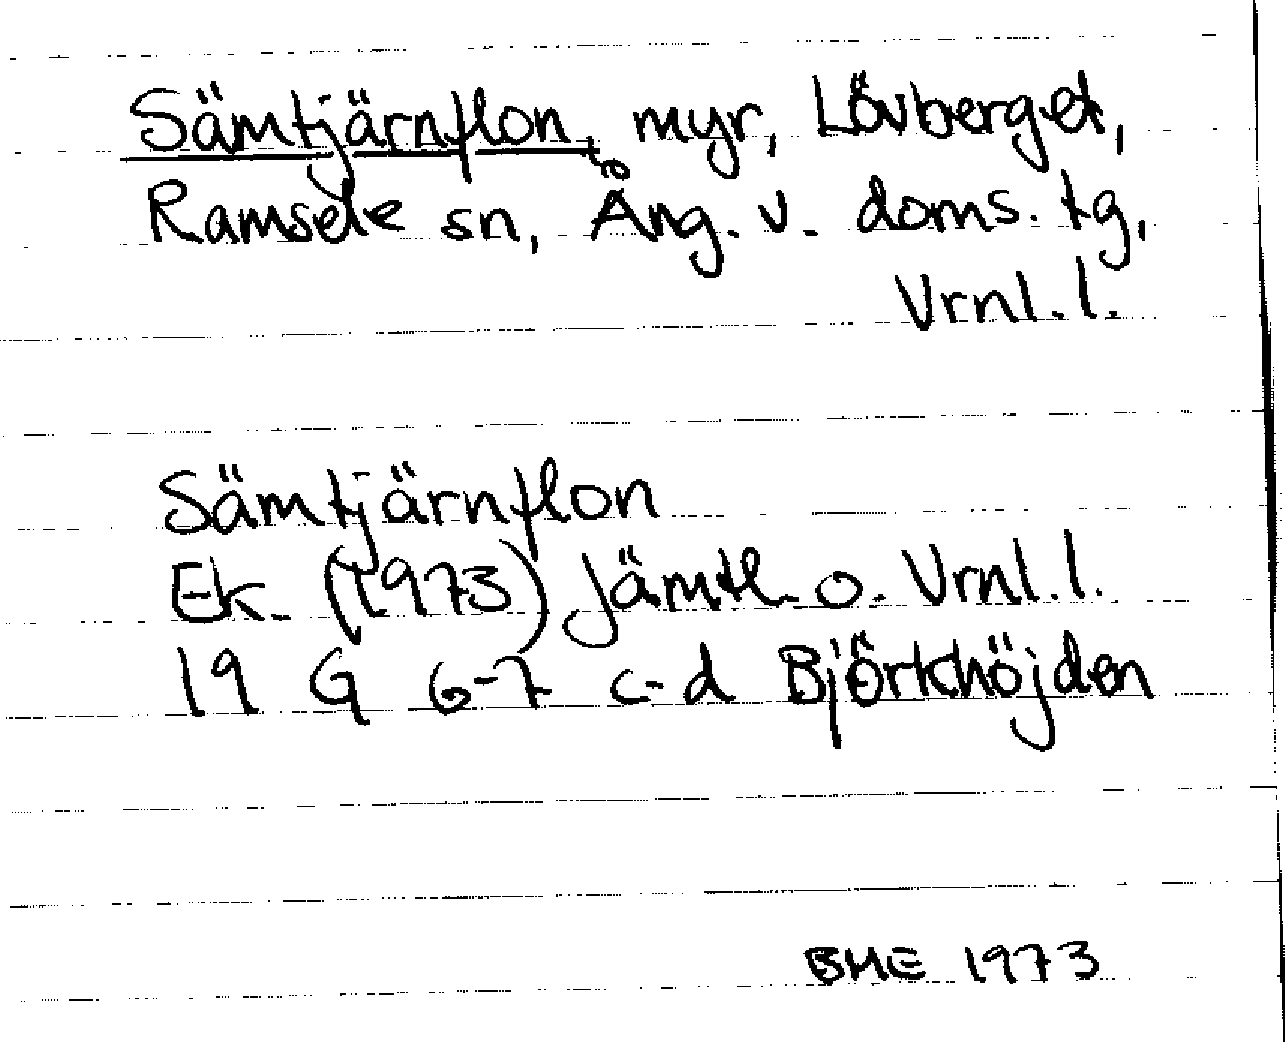 Sämtjärnflon, myr, Lövberget,
Ramsele sn, Ång. v. doms. tg,
Vrnl. l.
Sämtjärnflon
Ek. (1973) Jämtl. o. Vrnl. l.
19 G 6-7 c-d Björkhöjden
BME 1973